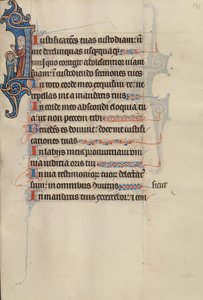 Iustificationes tuas custodiam: non
me derelinquas usquequaque
In quo corrigit adolescentior uiam
suam: in custodiendo sermones tuos
In toto corde meo exquisiui te: ne
repellas me a mandatis tuis
In corde meo abscondi eloquia tu
a: ut non peccem tibi
Benedictus es domine: doce me iustifi
cationes tuas
In labiis meis pronuntiaui om
nia iudicia oris tui
In uia testimoniorum tuorum delectatus
sum: in omnibus diuitiis sicut
In mandatis tuis exercebor: et con